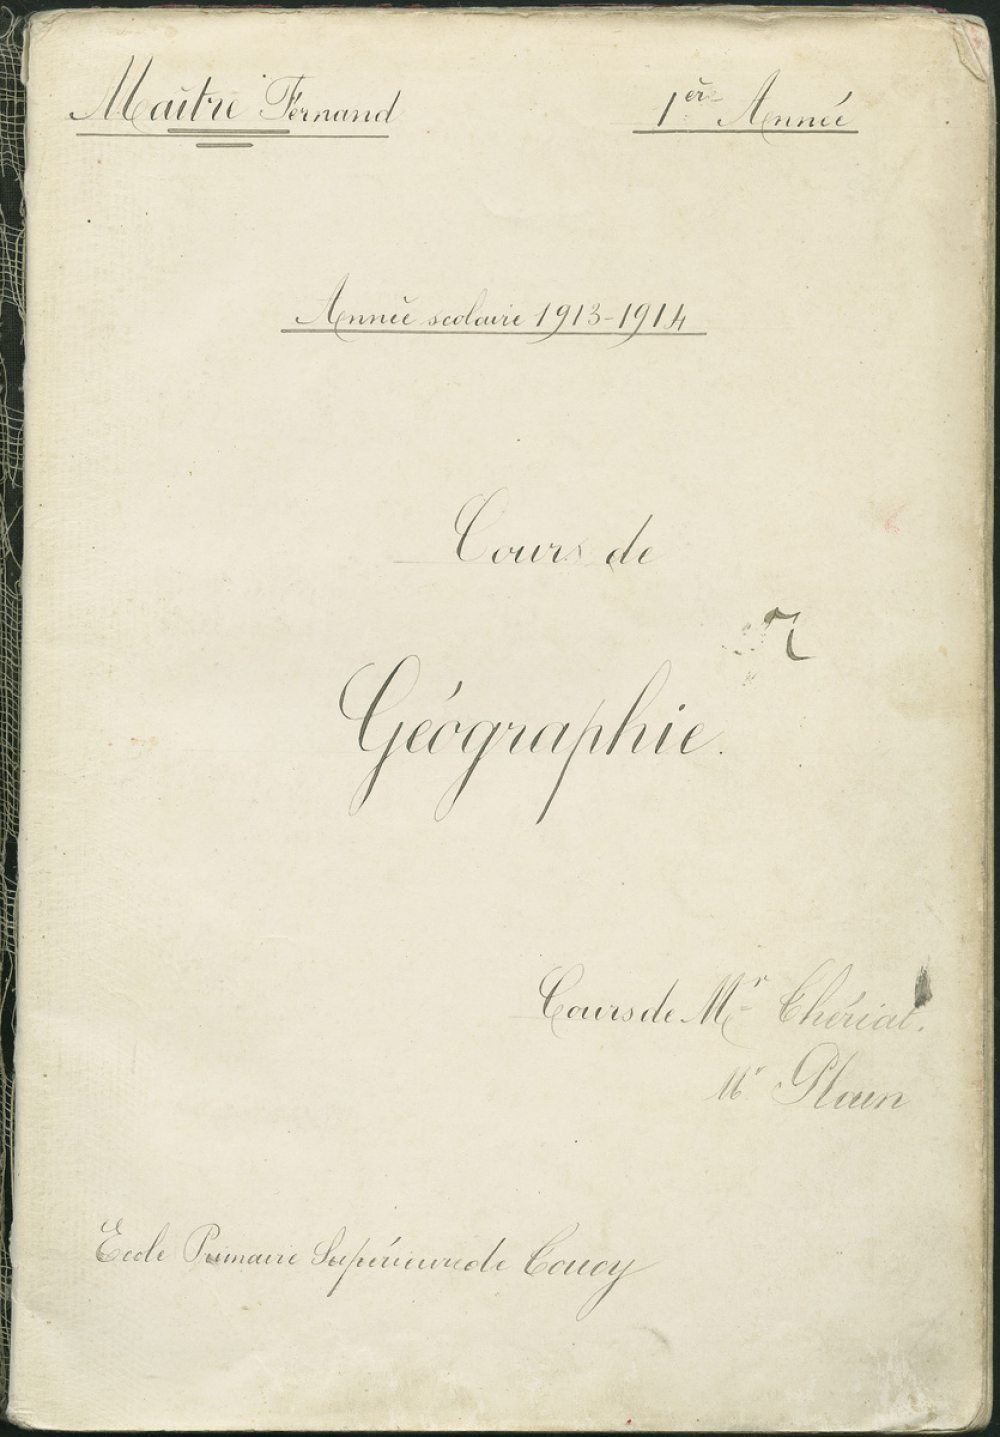 Maître Fernand
1ère Année
Année scolaire 1913-1914
Cours de
Géographie.
Cours de Mr Thériat.
Mr Plain
Ecole Primaire Supérieure de Coucy